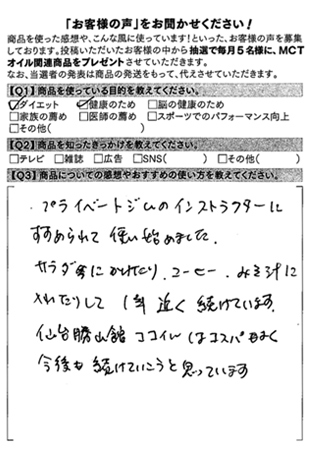 「お客様の声」をお聞かせください!
商品を使った感想や、こんな風に使っています!といった、お客様の声を募集
しております。投稿いただいたお客様の中から抽選で毎月5名様に、MCT
オイル関連商品をプレゼントさせていただきます。
なお、当選者の発表は商品の発送をもって、代えさせていただきます。
【Q1】商品を使っている目的を教えてください。
☑ダイエット ☑健康のため □脳の健康のため
□家族の薦め □医師の薦め □スポーツでのパフォーマンス向上
□その他( )
【Q2】商品を知ったきっかけを教えてください。
□テレビ □雑誌 □広告 □SNS( ) □その他( )
【Q3】商品についての感想やおすすめの使い方を教えてください。
プライベートジムのインストラクターに
すすめられて使い始めました。
サラダ等にかけたり、コーヒー、みそ汁に
入れたりして1年近く続けています。
仙台勝山館ココイルはコスパもよく
今後も続けていこうと思っています